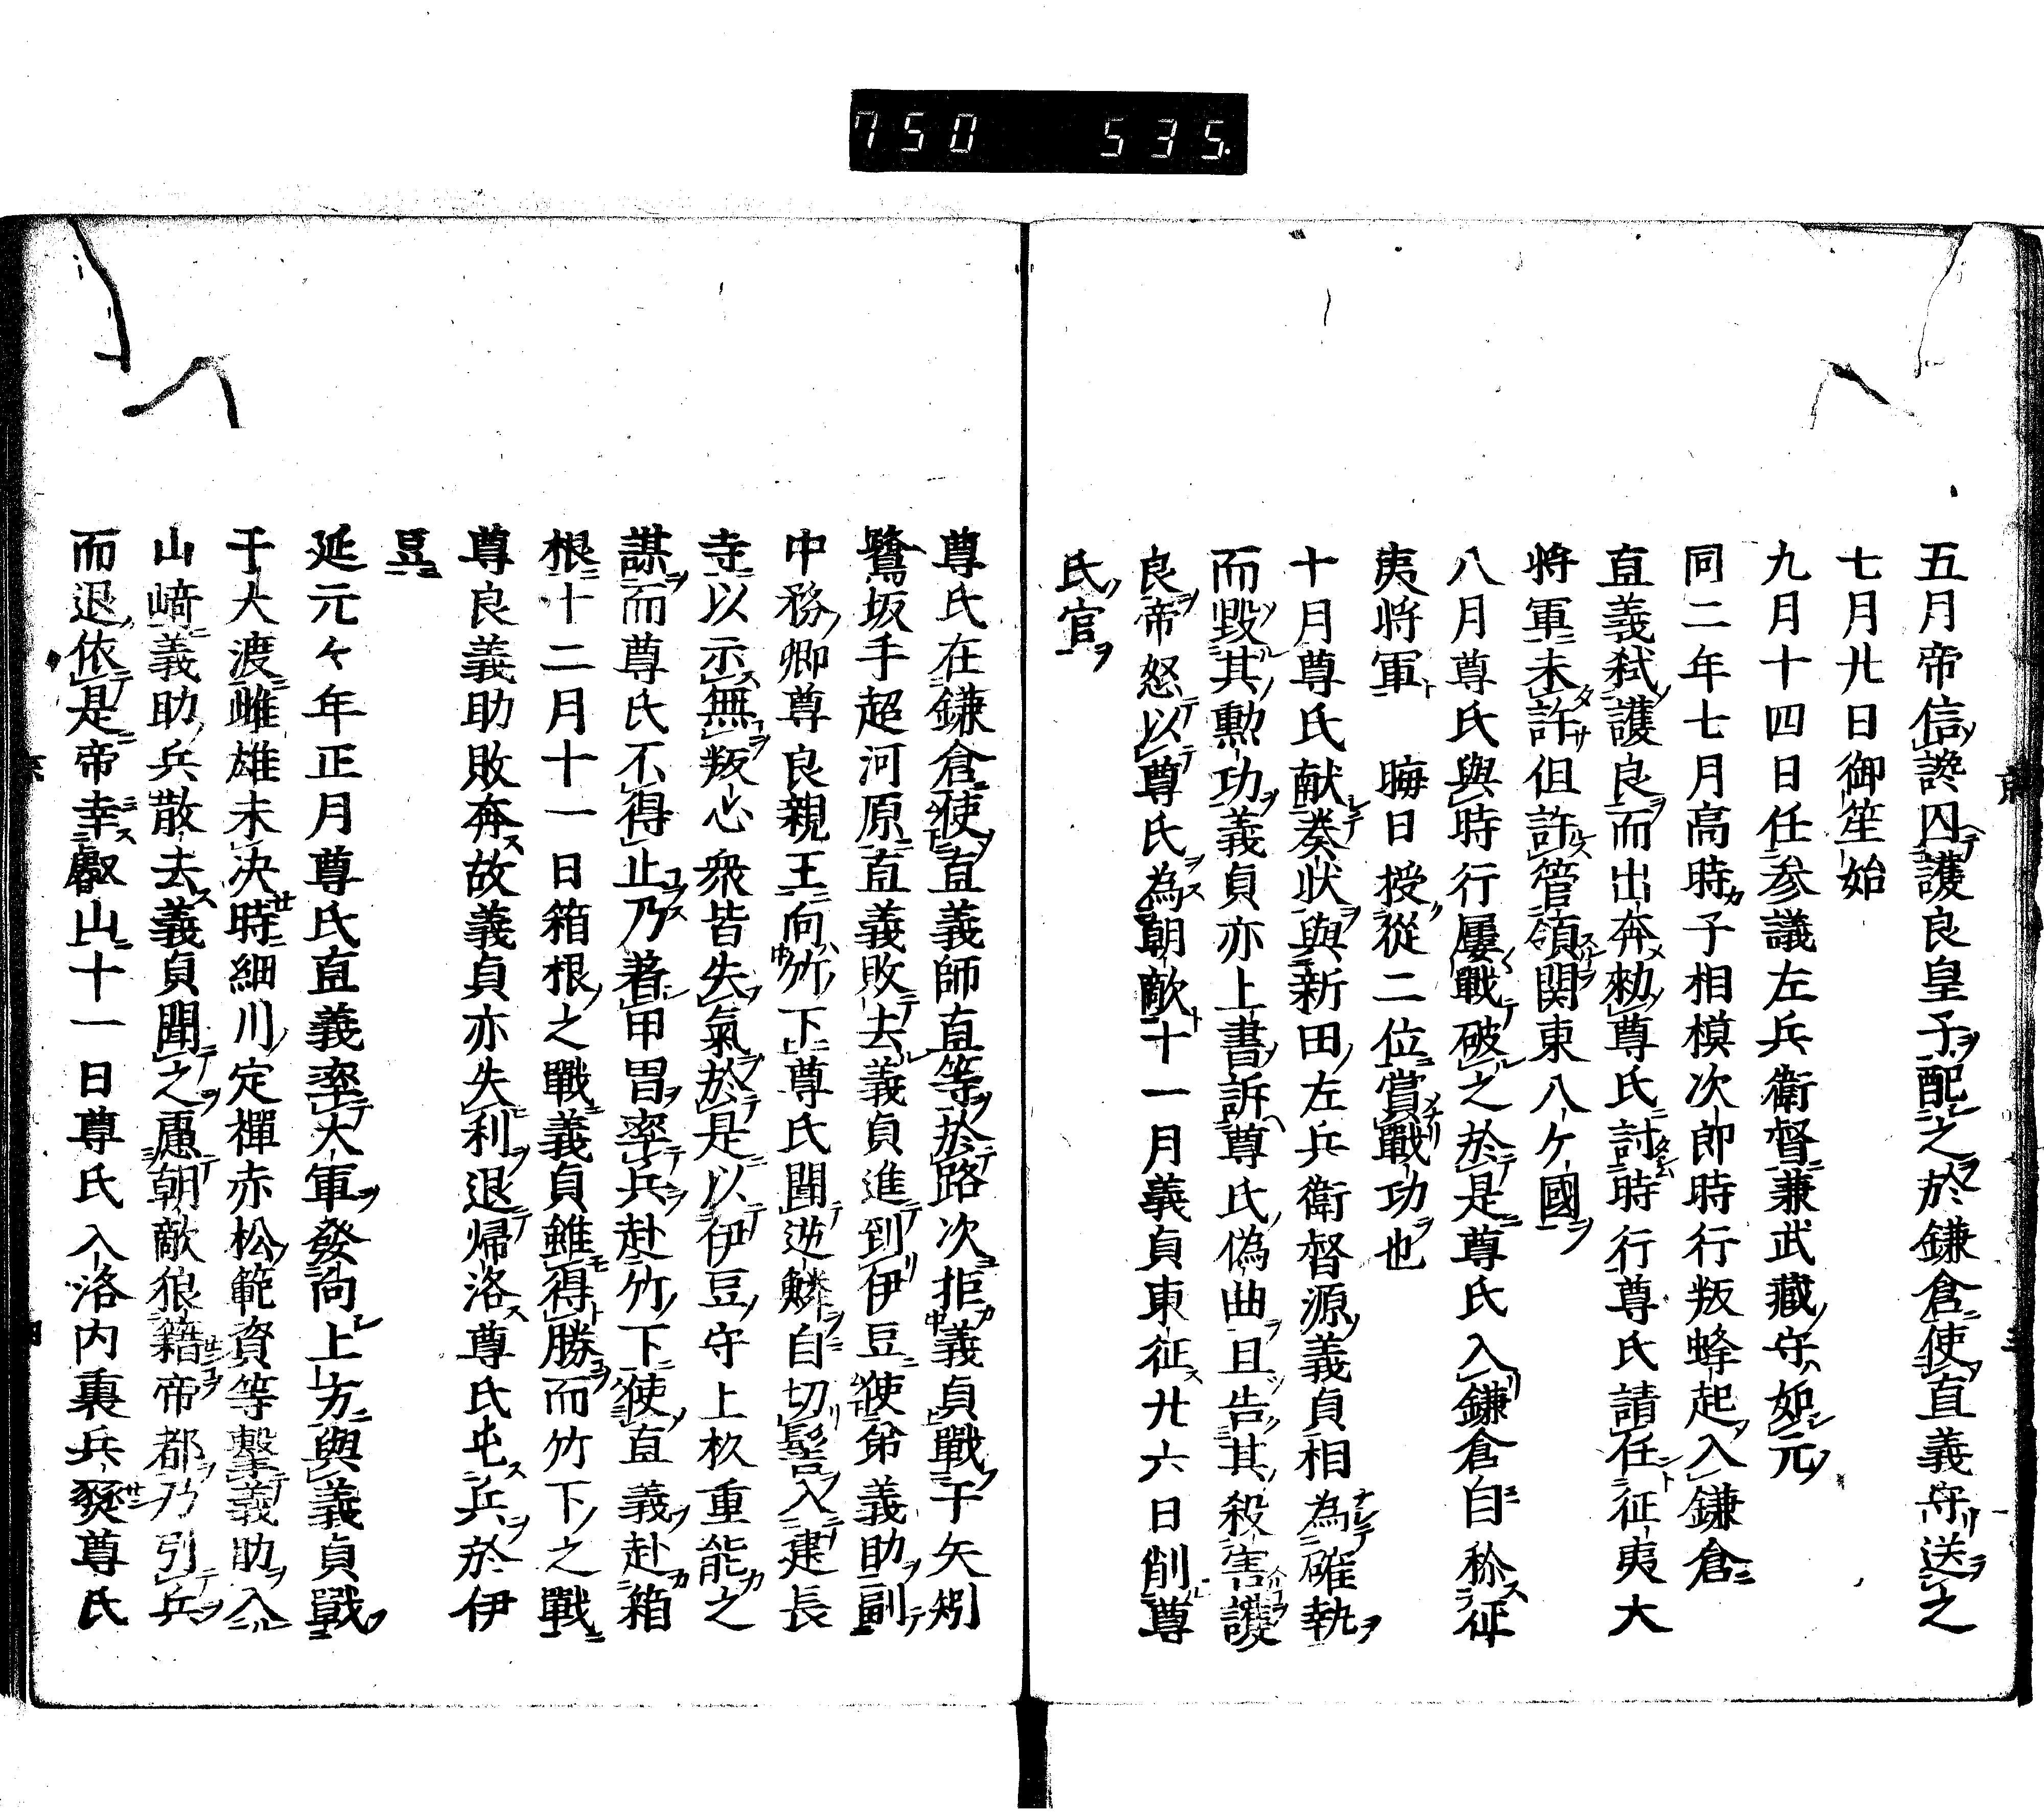 750 535.
五月帝信讒囚護良皇子配之於鎌倉使直義守送之
七月廿日御笙始
九月十四日任参議左兵衛督兼武藏守如元
同二年七月高時子相模次郎時行叛蜂起入鎌倉
直義弑護良而出奔勅尊氏討時行尊氏請任征夷大
將軍未許但許管領関東八ケ國
八月尊氏與時行屢戰破之於是尊氏入鎌倉自称征
夷将軍 晦日授從二位賞戰功也
十月尊氏献奏状與新田左兵衛督源義貞相為確執
而毀其勲功義貞亦上書訴尊氏偽曲且告其殺害護
良帝怒以尊氏為朝敵十一月義貞東征廿六日削尊
氏官
尊氏在鎌倉使直義師直等於路次拒義貞戰于矢矧
鷺坂手超河原直義敗去義貞進到伊豆使弟義助副
中務卿尊良親王向竹下尊氏聞逆鱗自切髻入建長
寺以示無叛心衆皆失氣於是以伊豆守上杦重能之
謀而尊氏不得止乃著甲冑率兵赴竹下使直義赴箱
根十二月十一日箱根之戰義貞雖得勝而竹下之戰
尊良義助敗奔故義貞亦失利退帰洛尊氏屯兵於伊
豆
延元々年正月尊氏直義率大軍發向上方與義貞戰
于大渡雌雄未决時細川定禪赤松範資等撃義助入
山﨑義助兵散去義貞聞之慮朝敵狼籍帝都乃引兵
而退依是帝幸叡山十一日尊氏入洛内裏兵燹尊氏